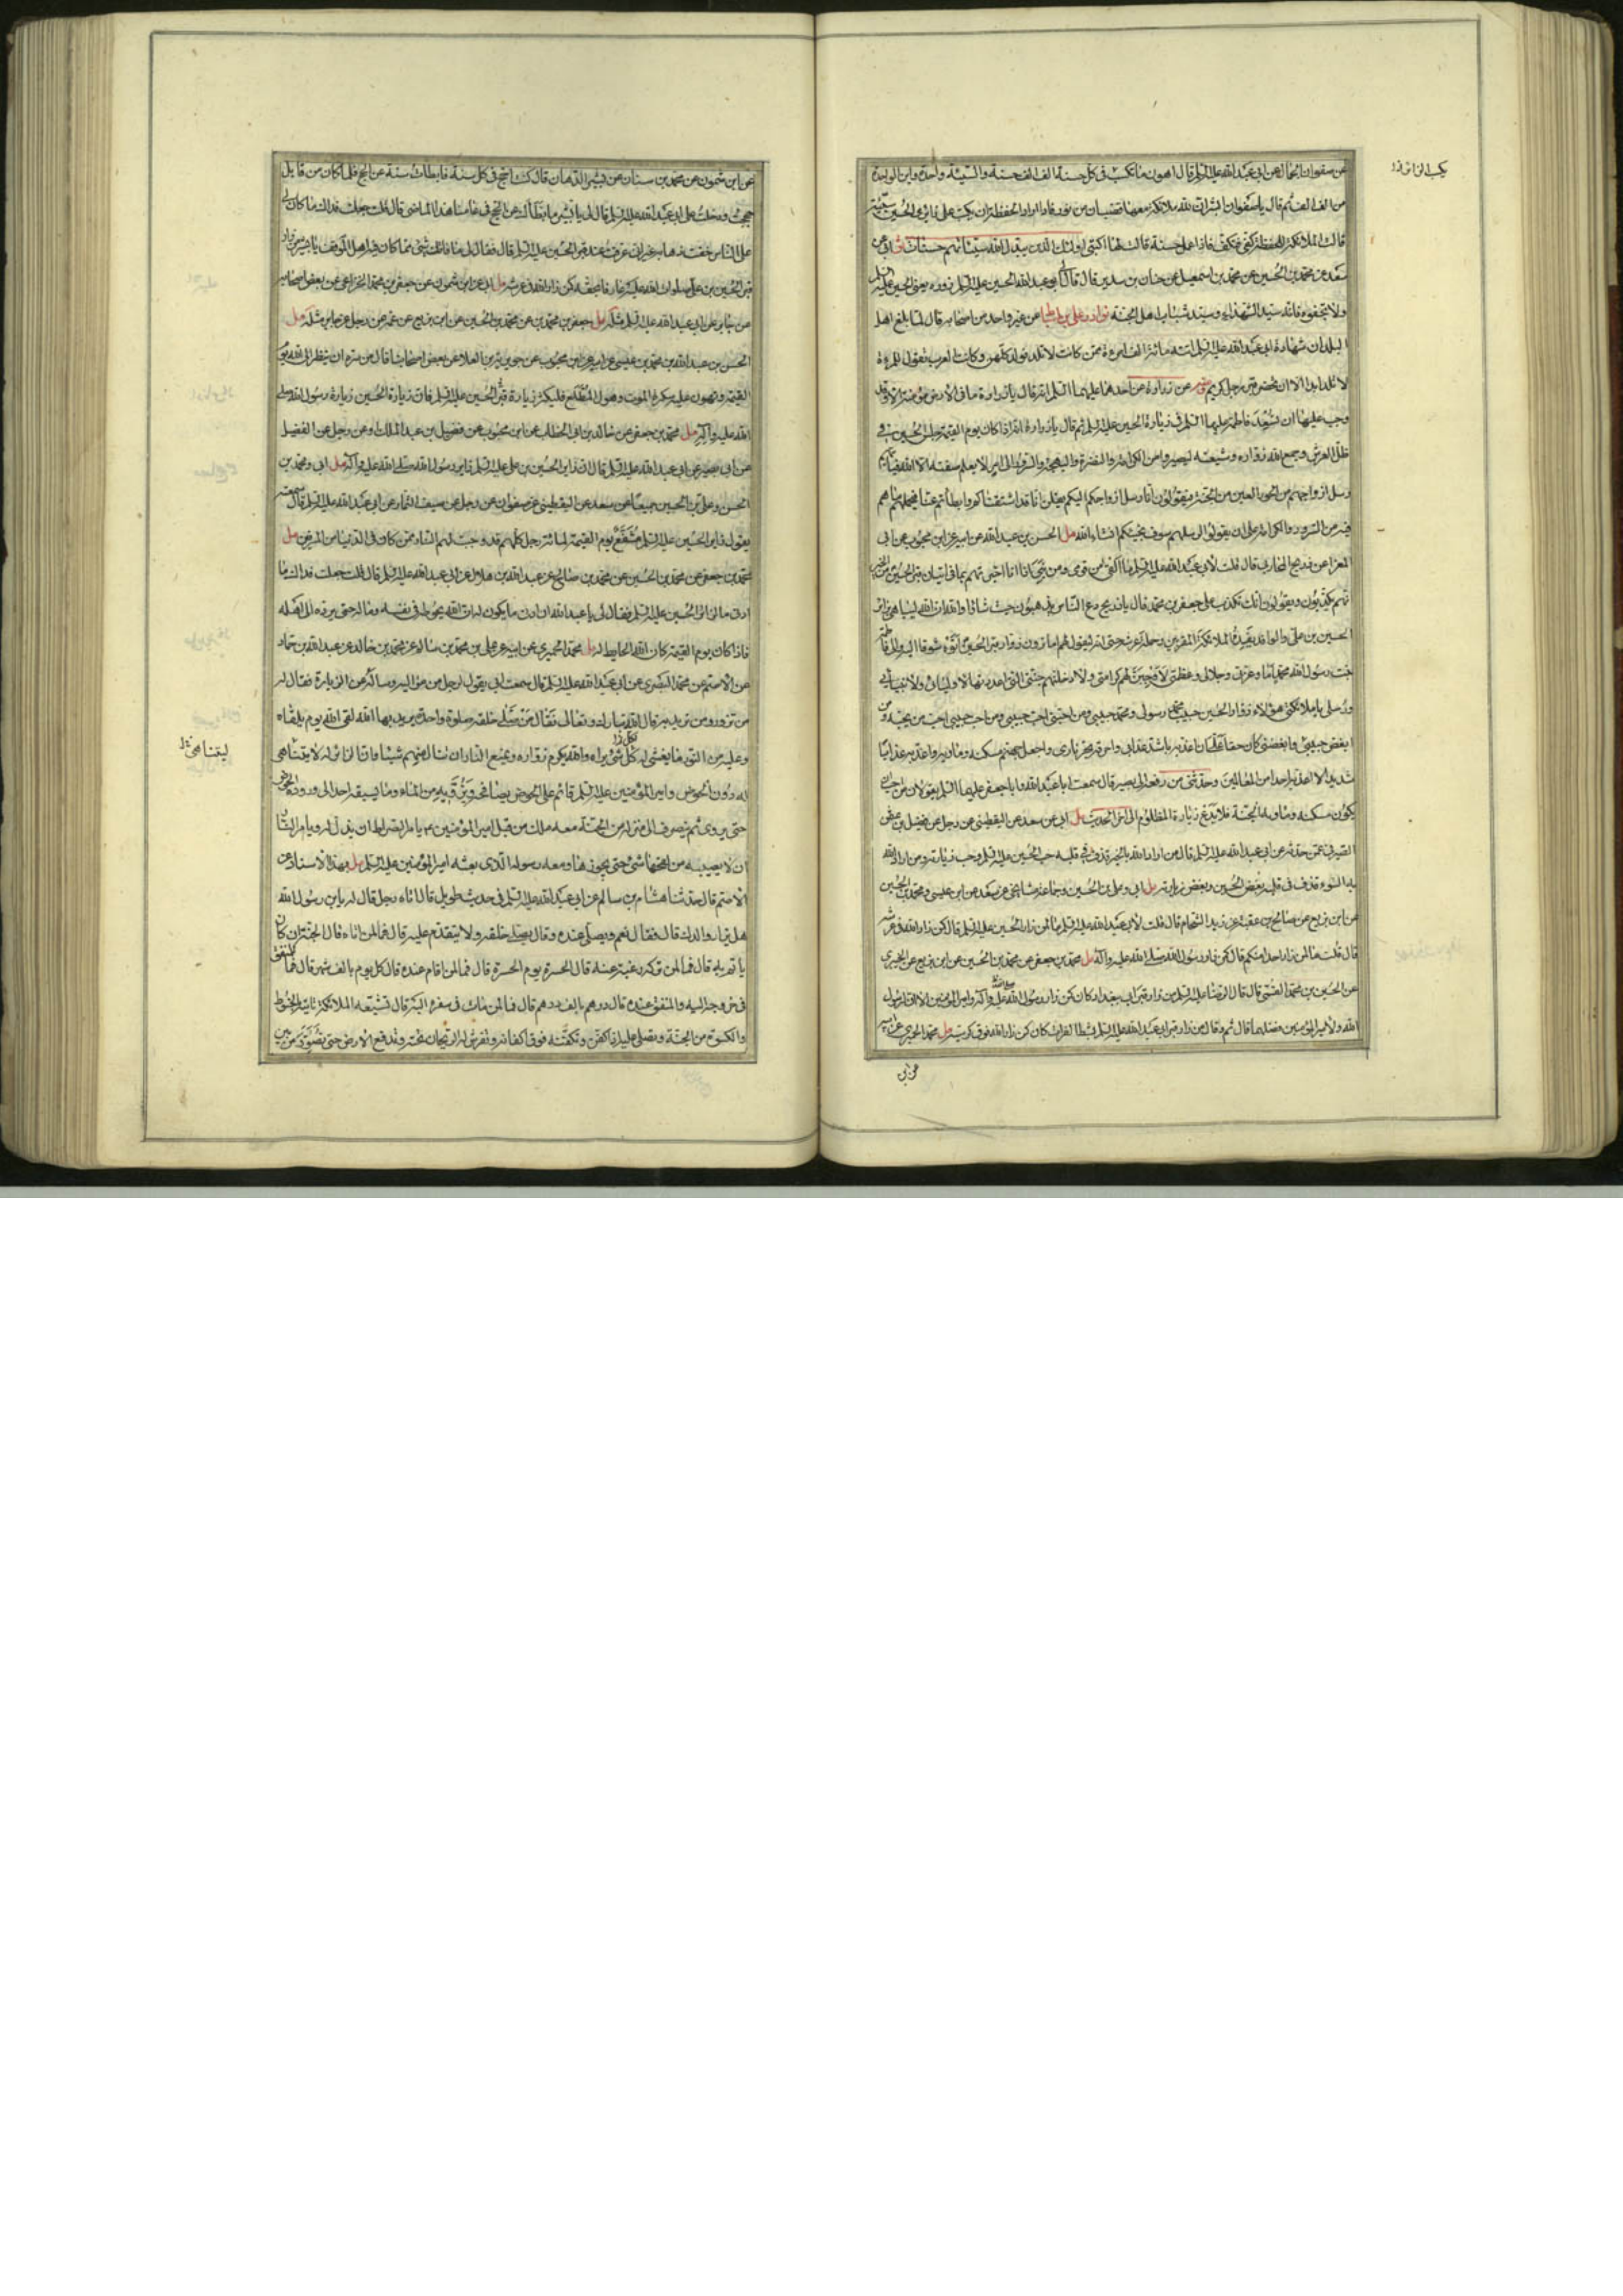 عن صفوان الجمال عن ابي عبد الله عليه السلم قال اهون ما يكتب في كل حسنة الف الف حسنة والسيئة واحدة واين الواحدة
من الف الف ثم قال يا صفوان ابشر ان لله ملائكة معها قضبان من نور فاذا اراد الحفظة ان يكتب على زائر الحسين سيئة
قالت الملائكة للحفظة كفي فتكف فاذا عمل حسنة قالت لها اكتبي اولئك الذين يبدل الله سيئاتهم حسنات
سعد عن محمد بن الحسين عن محمد بن اسمعيل عن حنان بن سدير قال قال ابو عبد الله الحسين عليه السلم زوره يعني الحسين عليه السلم
ولا تجفوه فانه سيد الشهداء وسيد شباب اهل الجنة نوادر علي بن اسباط عن غير واحد من اصحابه قال لما بلغ اهل
البلدان شهادة ابي عبد الله عليه السلم اتته مائة الف امرءة ممن كانت لا تلد فولدن كلهن وكانت العرب تقول للمرءة
لا تلد ابدا الا ان تحضر قبر رجل كريم ومنه عن زرارة عن احدهما عليهما السلم انه قال يا زرارة ما في الارض مؤمنة الا وقد
وجب عليها ان تسعد فاطمة عليها السلم في زيارة الحسين عليه السلم ثم قال يا زرارة انه اذا كان يوم القيمة جلس الحسين في
ظل العرش وجمع الله زواره وشيعته ليصيروا من الكرامة والنضرة والبهجة والسرور الى امر لا يعلم صفته الا الله فيأتيهم
رسل ازواجهم من الحور العين من الجنة فيقولون انا رسل ازواجكم اليكم يقلن انا قد اشتقناكم وابطأتم عنا فيحملهم ما هم
فيه من السرور والكرامة على ان يقولوا لرسلهم سوف نجيئكم انشاء الله مل الحسن بن عبد الله عن ابيه عن ابن محبوب عن ابي
المغرا عن ذريح المحاربي قال قلت لابي عبد الله عليه السلم ما القى من قومي ومن بني اذا انا اخبرتهم بما في اتيان قبر الحسين من الخير
انهم يكذبون ويقولون انك تكذب على جعفر بن محمد قال يا ذريح دع الناس يذهبون حيث شاؤا والله ان الله ليباهي بزائر
الحسين بن علي والوافد يفده الملائكة المقربين وحملة عرشه حتى انه ليقول لهم اما ترون زوار قبر الحسين اتوه شوقا اليه والى فاطمة
بنت رسول الله محمد اما وعزتي وجلالي وعظمتي لاوجبن لهم كرامتي ولادخلنهم جنتي التي اعددتها لاوليائي ولانبيائي
ورسلي يا ملائكتي هؤلاء زوار الحسين حبيب محمد رسولي ومحمد حبيبي ومن احبني احب حبيبي ومن احب حبيبي احب من يحبه ومن
ابغض حبيبي وابغضني كان حقا علي ان اعذبه باشد عذابي واحرقه بحر ناري واجعل جهنم مسكنه ومأواه واعذبه عذابا
شديدا لا اعذبه احدا من العالمين وحدثني من رفعه الى ابي بصير قال سمعت ابا عبد الله وابا جعفر عليهما السلم يقولان من احب ان
يكون مسكنه ومأواه الجنة فلا يدع زيارة المظلوم الى اخر الحديث مل ابي عن سعد عن اليقطيني عن رجل عن فضيل بن عثمن
الصيرفي عمن حدثه عن ابي عبد الله عليه السلم قال من اراد الله به الخير قذف في قلبه حب الحسين عليه السلم وحب زيارته ومن اراد الله
به السوء قذف في قلبه بغض الحسين وبغض زيارته مل ابي وعلي بن الحسين وجماعة مشايخي عن سعد عن ابن عيسى ومحمد بن الحسين
عن ابن بزيع عن صالح بن عقبة عن زيد الشحام قال قلت لابي عبد الله عليه السلم ما لمن زار الحسين عليه السلم قال كمن زار الله في عرشه
قال قلت ما لمن زار احدا منكم قال كمن زار رسول الله صلى الله عليه وآله مل محمد بن جعفر عن محمد بن الحسين عن ابن بزيع عن الخيبري
عن الحسين بن محمد القمي قال قال الرضا عليه السلم من زار قبر ابي ببغداد كان كمن زار رسول الله صلى الله عليه وآله وامير المؤمنين الا ان لرسول
الله ولامير المؤمنين فضلهما قال ثم قال من زار قبر ابي عبد الله عليه السلم بشط الفرات كان كمن زار الله فوق كرسيه مل محمد الحميري عن ابيه
عن ابي
عن ابن شمون عن محمد بن سنان عن بشير الدهان قال كنت احج في كل سنة فابطأت سنة عن الحج فلما كان من قابل
حججت ودخلت على ابي عبد الله عليه السلم فقال لي يا بشير ما بطأك عن الحج في عامنا هذا الماضي قال قلت جعلت فداك مال كان لي
على الناس خفت ذهابه غير اني عرفت عند قبر الحسين عليه السلم قال فقال لي ما فاتك شئ مما كان فيه اهل الموقف يا بشير من زار
قبر الحسين بن علي صلوات الله عليه عارفا بحقه كمن زار الله في عرشه مل ابي عن ابن شمون عن جعفر بن محمد الخزاعي عن بعض اصحابه
عن جابر عن ابي عبد الله عليه السلم مثله مل جعفر بن محمد بن عن محمد بن الحسين عن ابن بزيع عن عمه عن رجل عن جابر مثله مل
الحسن بن عبد الله بن محمد بن عيسى عن ابيه عن ابن محبوب عن جويرية بن العلاء عن بعض اصحابنا قال من سره ان ينظر الى الله يوم
القيمة وتهون عليه سكرة الموت وهول المطلع فليكثر زيارة قبر الحسين عليه السلم فان زيارة الحسين زيارة رسول الله صلى
الله عليه وآله مل محمد بن جعفر عن خالد بن ابي الخطاب عن ابن محبوب عن فضيل بن عبد الملك او عن رجل عن الفضيل
عن ابي بصير عن ابي عبد الله عليه السلم قال ان زائر الحسين بن علي عليه السلم زائر رسول الله صلى الله عليه وآله مل ابي ومحمد بن
الحسن وعلي بن الحسين جميعا عن سعد عن اليقطيني عن صفوان عن رجل عن سيف التمار عن ابي عبد الله عليه السلم قال سمعته
يقول زائر الحسين عليه السلم مشفع يوم القيمة لمائة رجل كلهم قد وجبت لهم النار ممن كان في الدنيا من المسرفين مل
محمد بن جعفر عن محمد بن الحسين عن محمد بن صالح عن عبد الله بن هلال عن ابي عبد الله عليه السلم قال قلت جعلت فداك ما
ادنى ما لزائر الحسين عليه السلم فقال لي يا عبد الله ان ادنى ما يكون له ان الله يحوطه في نفسه وماله حتى يرده الى اهله
فاذا كان يوم القيمة كان الله الحايط له مل محمد الحميري عن ابيه عن علي بن محمد بن سالم عن محمد بن خالد عن عبد الله بن حماد
عن الاصم عن محمد البصري عن ابي عبد الله عليه السلم قال سمعت ابي يقول لرجل من مواليه وسأله عن الزيارة فقال له
من تزور ومن تريد به قال الله تبارك وتعالى فقال من صلى خلفه صلوة واحدة يريد بها الله لقي الله يوم يلقاه
وعليه من النور ما يغشى له كل شئ يراه والله يكرم زواره ويمنع النار ان تنال منهم شيئا وان الزائر له لا يتناهى
له دون الحوض وامير المؤمنين عليه السلم قائم على الحوض يصافحه ويرويه من الماء وما يسبقه احد الى وروده الحوض
حتى يروى ثم ينصرف الى منزله من الجنة معه ملك من قبل امير المؤمنين يأمر الصراط ان يذل له ويأمر النار
ان لا يصيبه من لفحها شئ حتى يجوزها ومعه رسوله الذي بعثه امير المؤمنين عليه السلم مل بهذا الاسناد عن
الاصم قال حدثنا هشام بن سالم عن ابي عبد الله عليه السلم في حديث طويل قال اتاه رجل فقال له يا بن رسول الله
هل يزار والدك قال فقال نعم ويصلى عنده وقال يصلى خلفه ولا يتقدم عليه قال فما لمن اتاه قال الجنة ان كان
يأتم به قال فما لمن تركه رغبة عنه قال الحسرة يوم الحسرة قال فما لمن اقام عنده قال كل يوم بالف شهر قال فما للمنفق
في خروجه اليه والمنفق عنده قال درهم بالف درهم قال فما لمن مات في سفره اليه قال تشيعه الملائكة وتأتيه بالحنوط
والكسوة من الجنة وتصلي عليه اذا كفن وتكفنه فوق اكفانه وتفرش له الريحان تحته وتدفع الارض حتى تصور من بين